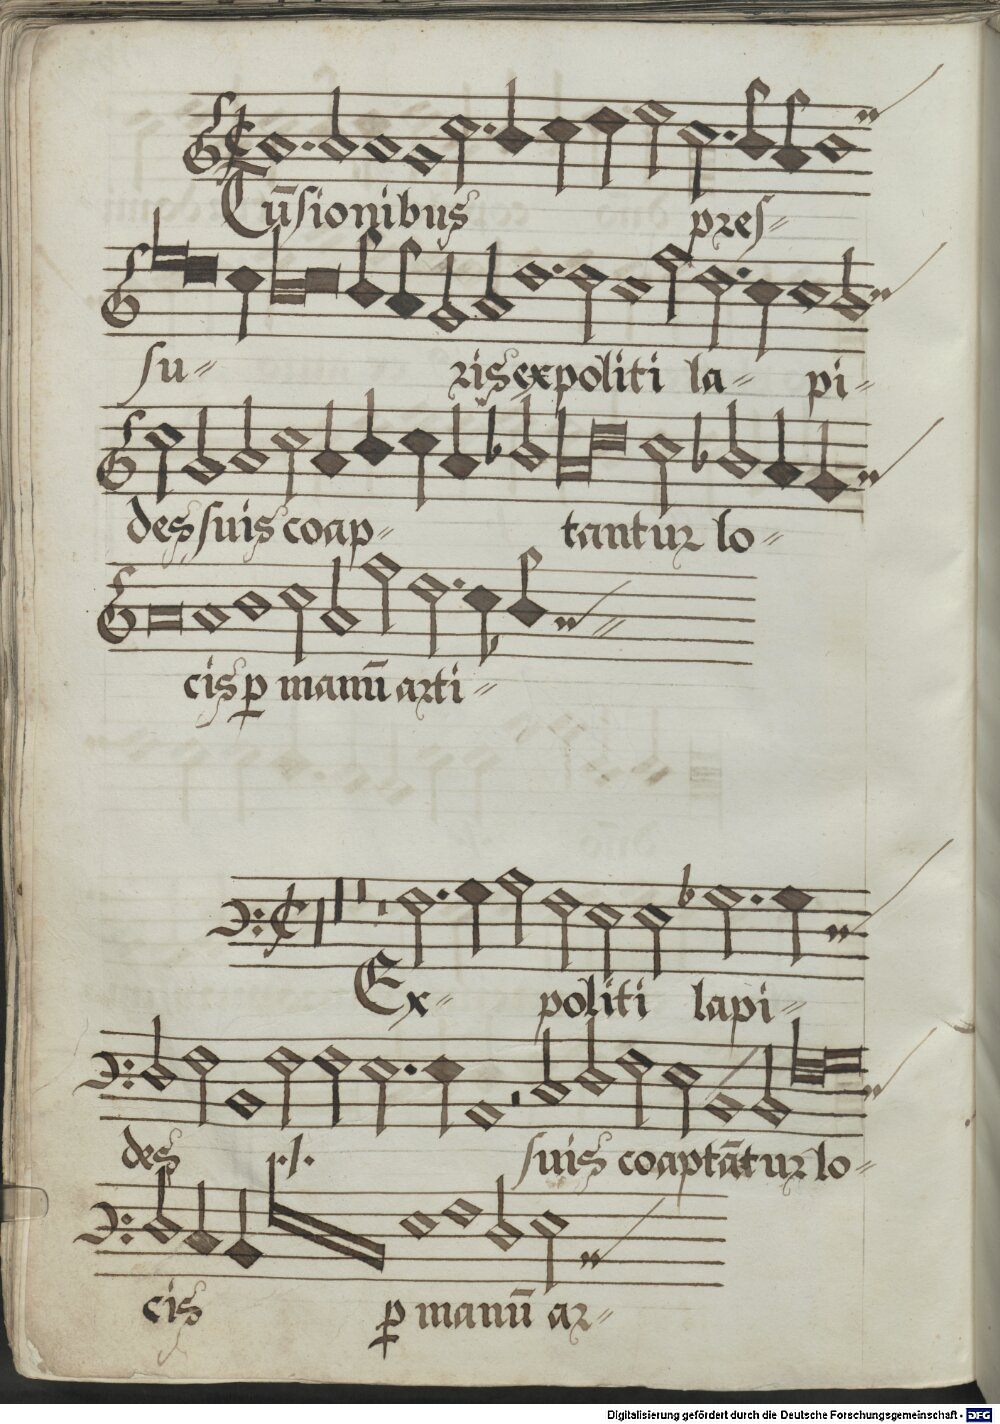 Tūsionibus pres-
su- ris expoliti la- pi-
des suis coap- tantur lo-
cis p manū arti-
Ex- politi lapi-
des ·/· suis coaptātur lo-
cis p manū ar-
Digitalisierung gefördert durch die Deutsche Forschungsgemeinschaft - DFG